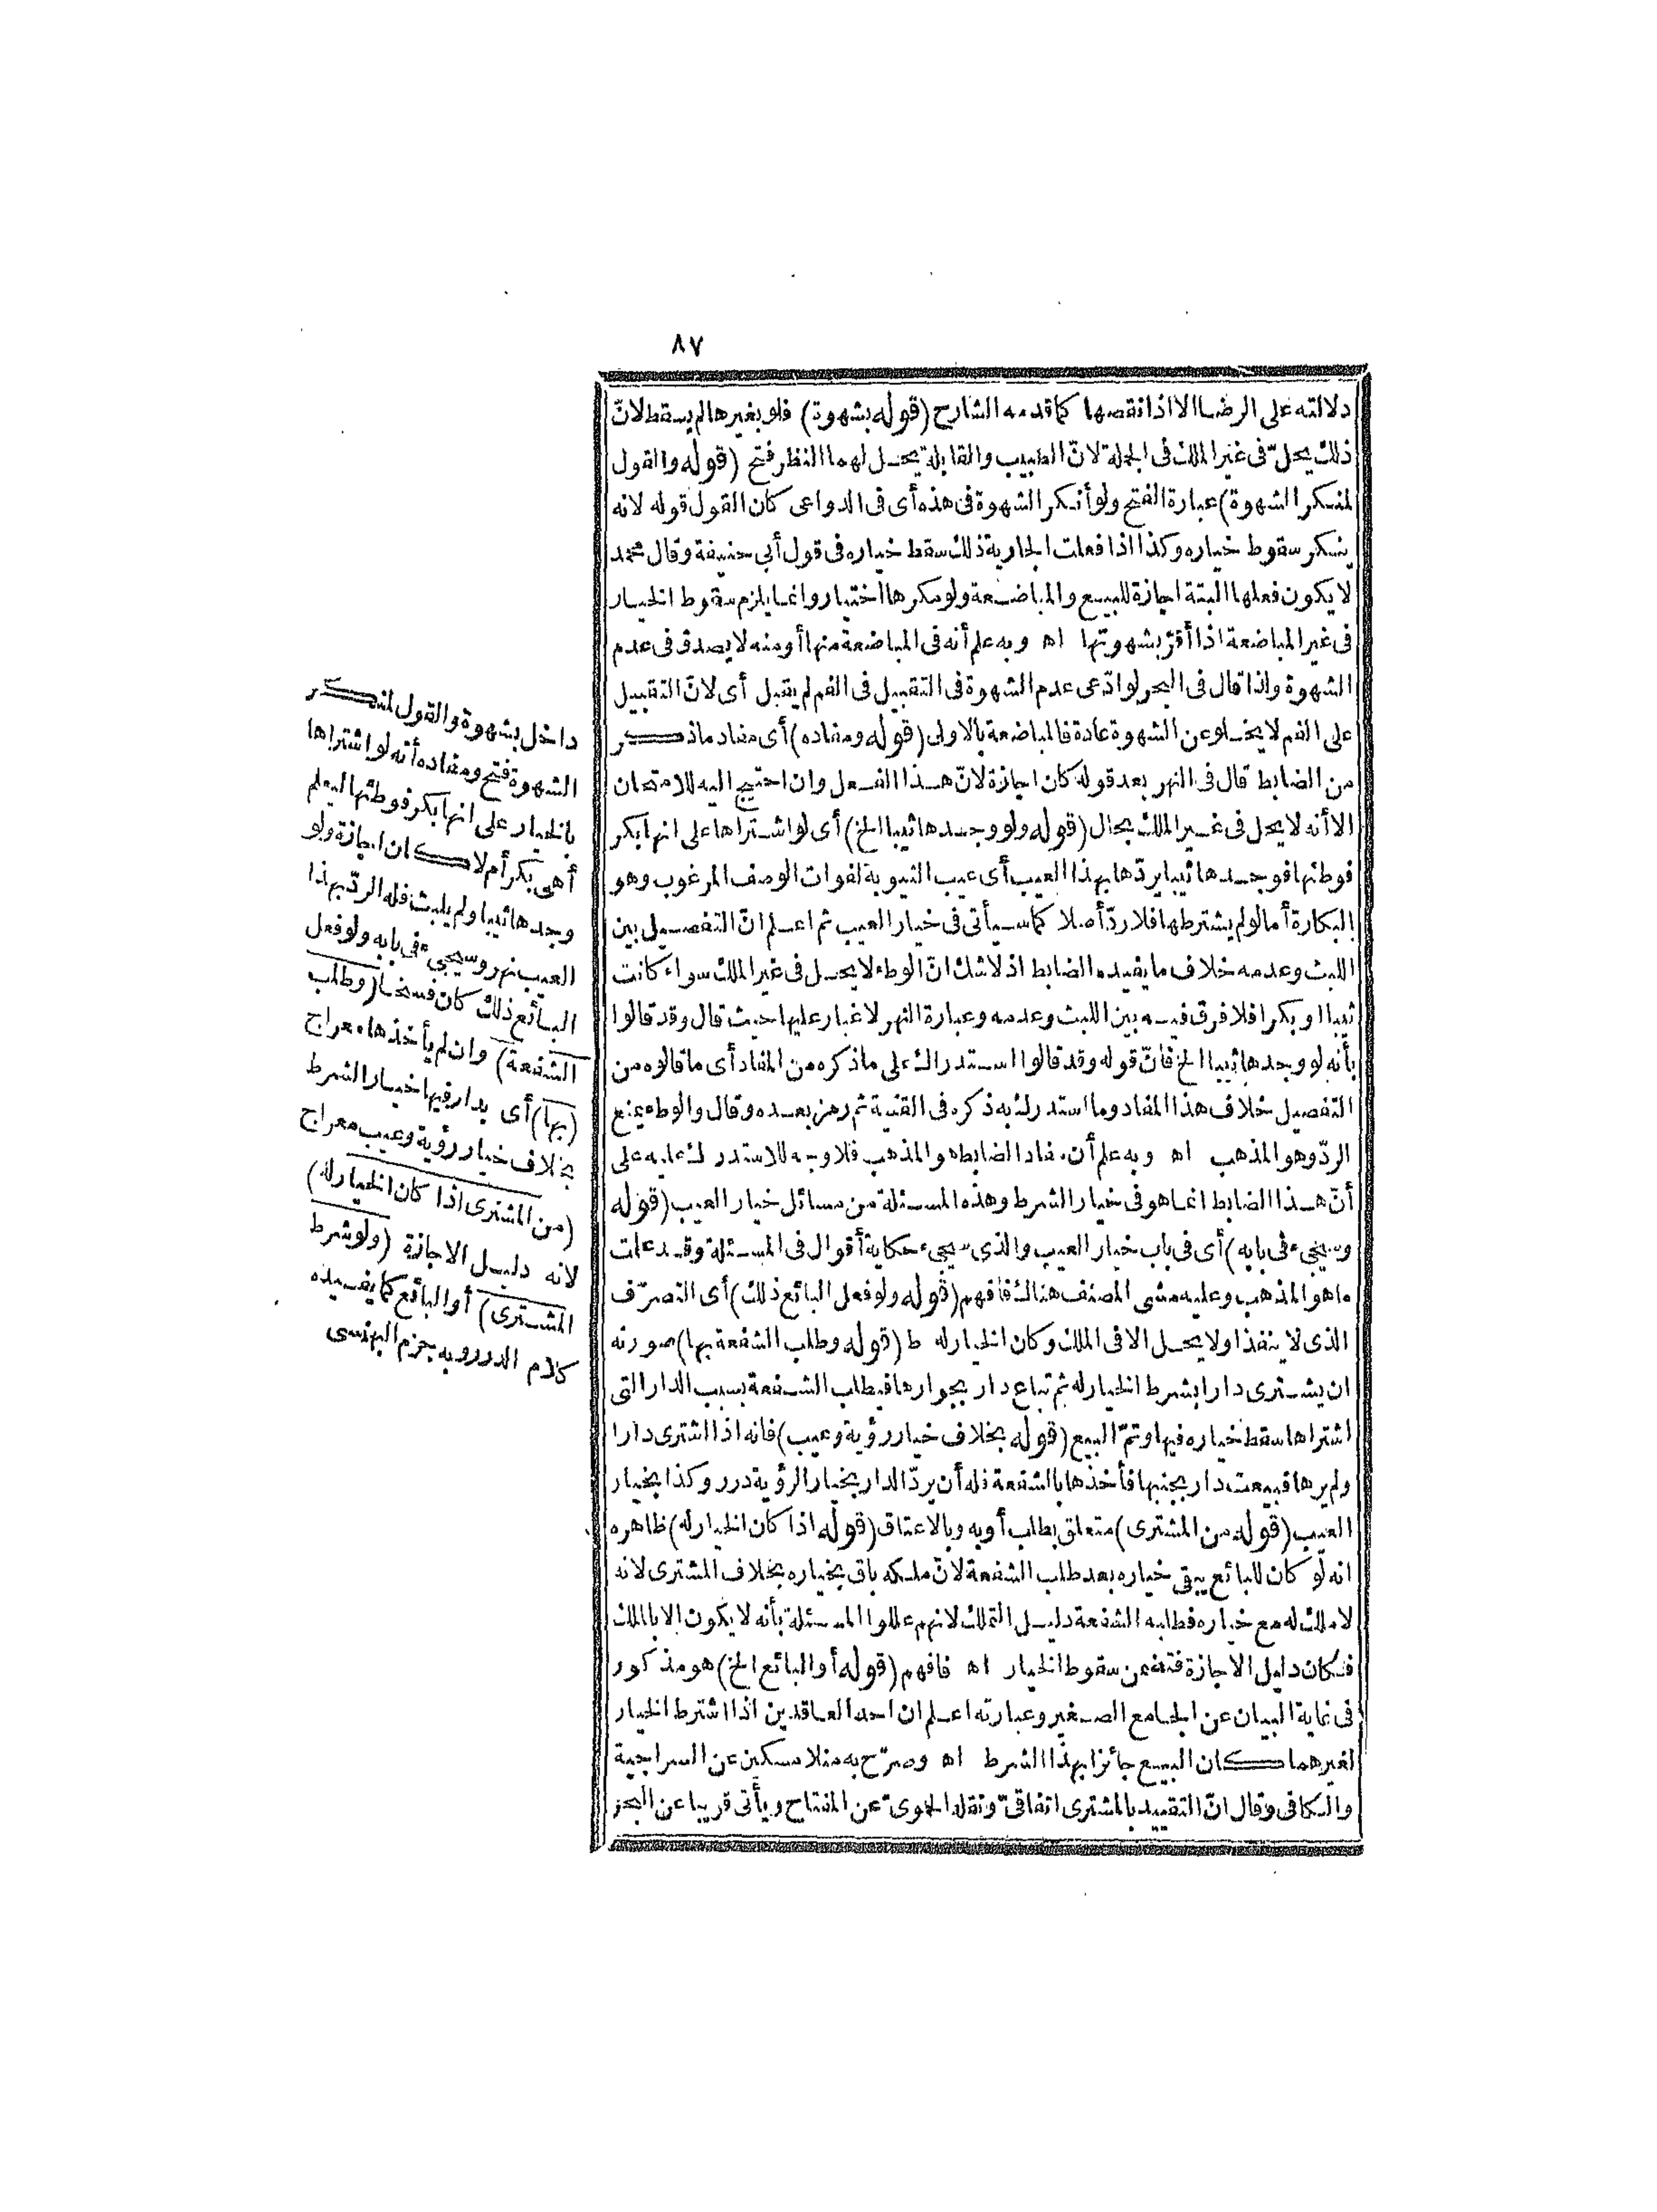 ٨٧
دلالته على الرضا الا اذا نقصها كما قدمه الشارح (قوله بشهوة) فلو بغيرها لم يسقط لانّ
ذلك يحلّ فى غير الملك فى الجملة لانّ الطبيب والقابلة يحل لهما النظر فتح (قوله والقول
لمنكر الشهوة) عبارة الفتح ولو أنكر الشهوة فى هذه أى فى الدواعى كان القول قوله لانه
ينكر سقوط خياره وكذا اذا فعلت الجارية ذلك سقط خياره فى قول أبى حنيفة وقال محمد
لا يكون فعلها البتة اجازة للبيع والمباضعة ولو مكرها اختيار وانما يلزم سقوط الخيار
فى غير المباضعة اذا أقرّ بشهوتها اه وبه علم أنه فى المباضعة منها أو منه لا يصدق فى عدم
الشهوة ولذا قال فى البحر لو ادّعى عدم الشهوة فى التقبيل فى الفم لم يقبل أى لانّ التقبيل
على الفم لا يخلو عن الشهوة عادة فالمباضعة بالاولى (قوله ومفاده) أى مفاد ما ذكر
من الضابط قال فى النهر بعد قوله كان اجازة لانّ هذا الفعل وان احتيج اليه للامتحان
الا أنه لا يحل فى غير الملك بحال (قوله ولو وجدها ثيبا الخ) أى لو اشتراها على انها بكر
فوطئها فوجدها ثيبا يردّها بهذا العيب أى عيب الثيوبة لفوات الوصف المرغوب وهو
البكارة أما لو لم يشترطها فلا ردّ أصلا كما سيأتى فى خيار العيب ثم اعلم انّ التفصيل بين
اللبث وعدمه خلاف ما يفيده الضابط اذ لا شك انّ الوطء لا يحل فى غير الملك سواء كانت
ثيبا او بكرا فلا فرق فيه بين اللبث وعدمه وعبارة النهر لا غبار عليها حيث قال وقد قالوا
بأنه لو وجدها ثيبا الخ فانّ قوله وقد قالوا استدراك على ما ذكره من المفاد أى ما قالوه من
التفصيل خلاف هذا المفاد وما استدرك به ذكره فى القنية ثم رمز بعده وقال والوطء يمنع
الردّ وهو المذهب اه وبه علم أن مفاد الضابط هو المذهب فلا وجه للاستدراك عليه على
أنّ هذا الضابط انما هو فى خيار الشرط وهذه المسئلة من مسائل خيار العيب (قوله
وسيجىء فى بابه) أى فى باب خيار العيب والذى سيجىء حكاية أقوال فى المسئلة وقد علمت
ما هو المذهب وعليه مشى المصنف هناك فافهم (قوله ولو فعل البائع ذلك) أى التصرّف
الذى لا ينفذ اولا يحل الا فى الملك وكان الخيار له ط (قوله وطلب الشفعة بها) صورته
ان يشترى دارا بشرط الخيار له ثم تباع دار بجوارها فيطلب الشفعة بسبب الدار التى
اشتراها سقط خياره فيها وتمّ البيع (قوله بخلاف خيار رؤية وعيب) فانه اذا اشترى دارا
ولم يرها فبيعت دار بجنبها فأخذها بالشفعة فله أن يردّ الدار بخيار الرؤية درر وكذا بخيار
العيب (قوله من المشترى) متعلق بطلب أو به وبالاعتاق (قوله اذا كان الخيار له) ظاهره
انه لو كان للبائع يبقى خياره بعد طلب الشفعة لانّ ملكه باق بخياره بخلاف المشترى لانه
لا ملك له مع خياره فطلبه الشفعة دليل التملك لانهم عللوا المسئلة بأنه لا يكون الا بالملك
فكان دليل الاجازة فتضمن سقوط الخيار اه فافهم (قوله أو البائع الخ) هو مذكور
فى غاية البيان عن الجامع الصغير وعبارته اعلم ان احد العاقدين اذا اشترط الخيار
لغيرهما كان البيع جائزا بهذا الشرط اه وصرّح به منلا مسكين عن السراجية
والكافى وقال انّ التقييد بالمشترى اتفاقىّ ونقله الحموىّ عن المفتاح ويأتى قريبا عن البحر
داخل بشهوة والقول لمنكر
الشهوة فتح ومفاده أنه لو اشتراها
بالخيار على انها بكر فوطئها ليعلم
أهى بكر أم لا كان اجازة ولو
وجدها ثيبا ولم يلبث فله الردّ بهذا
العيب نهر وسيجىء فى بابه ولو فعل
البائع ذلك كان فسخا (وطلب
الشفعة) وان لم يأخذها معراج
(بها) أى بدار فيها خيار الشرط
بخلاف خيار رؤية وعيب معراج
(من المشترى اذا كان الخيار له)
لانه دليل الاجازة (ولو شرط
المشترى) أو البائع كما يفيده
كلام الدرر وبه جزم البهنسى